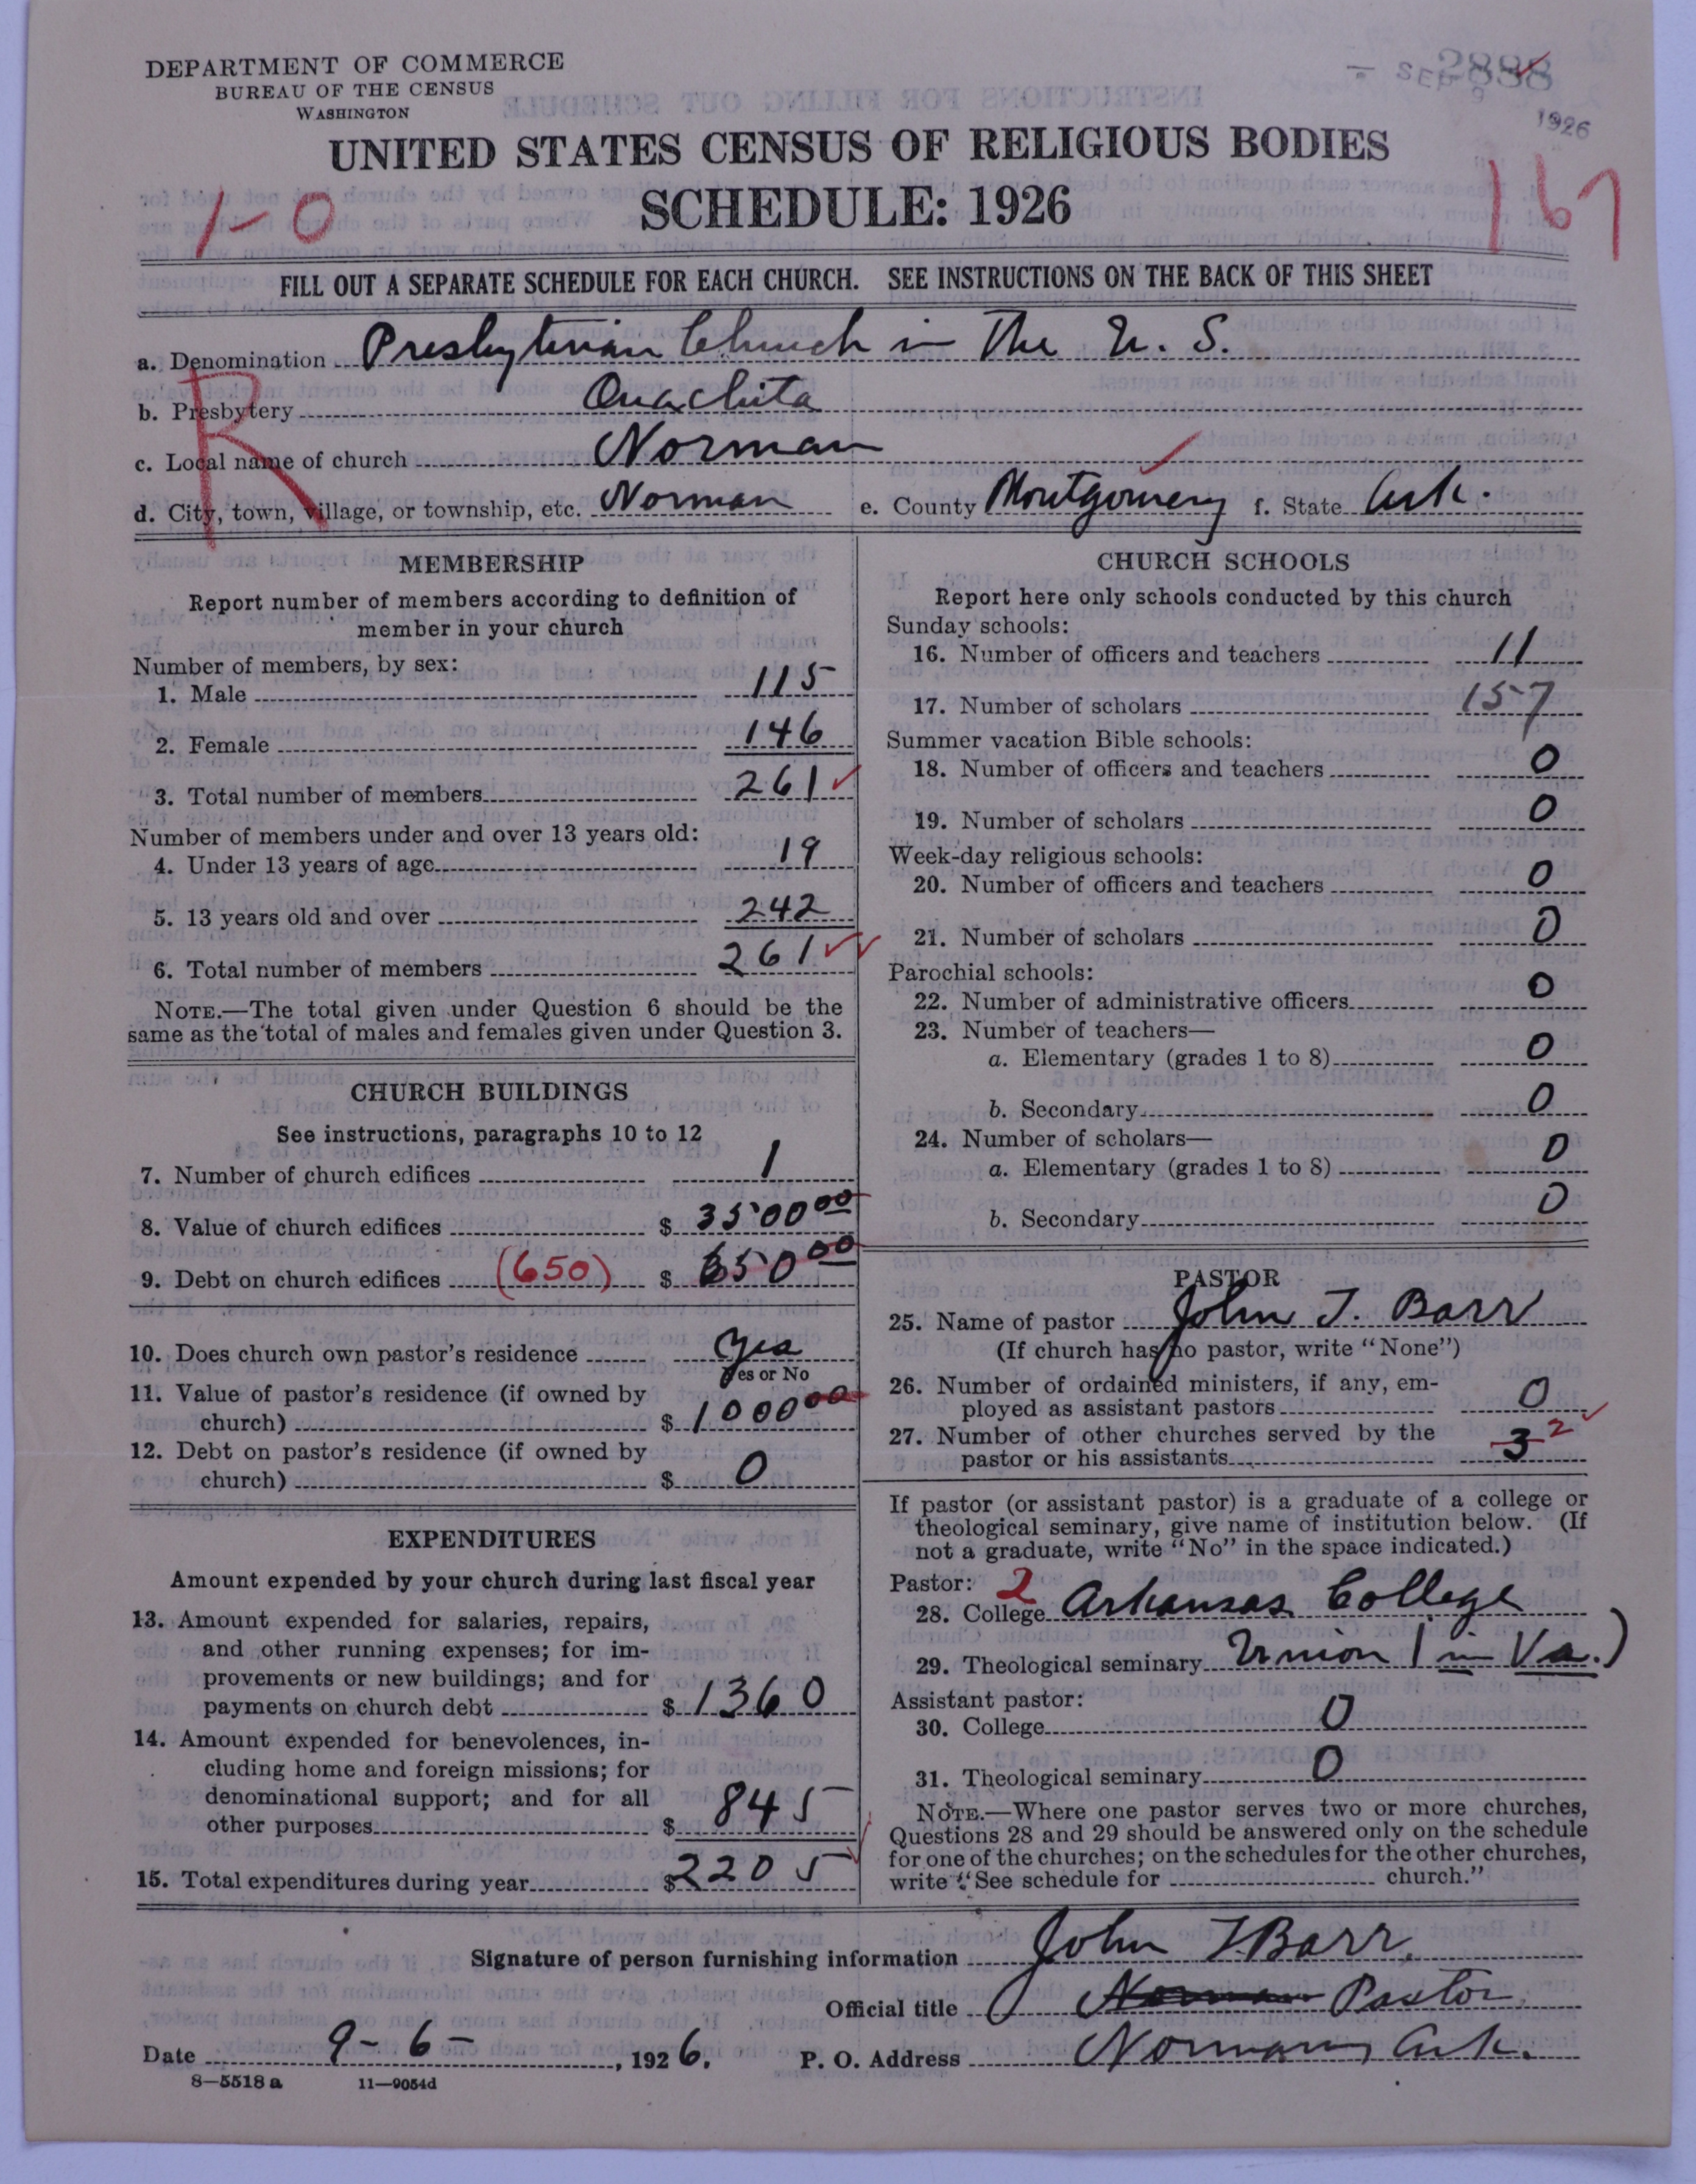 DEPARTMENT OF COMMERCE
BUREAU OF THE CENSUS
WASHINGTON
2888
SEP 9
1926
UNITED STATES CENSUS OF RELIGIOUS BODIES
SCHEDULE: 1926
1-0
167
FILL OUT A SEPARATE SCHEDULE FOR EACH CHURCH. SEE INSTRUCTIONS ON THE BACK OF THIS SHEET
a. Denomination Presbyterian Church in The U. S.
b. Presbytery Ouachita
R
c. Local name of church Norman
d. City, town, village, or township, etc. Norman e. County Montgomery f. State Ark.
MEMBERSHIP
Report number of members according to definition of
member in your church
Number of members, by sex:
1. Male 115
2. Female 146
3. Total number of members 261
Number of members under and over 13 years old:
4. Under 13 years of age 19
5. 13 years old and over 242
6. Total number of members 261
NOTE.—The total given under Question 6 should be the
same as the total of males and females given under Question 3.
CHURCH BUILDINGS
See instructions, paragraphs 10 to 12
7. Number of church edifices 1
8. Value of church edifices $ 3500 00
9. Debt on church edifices (650) $ 650 00
10. Does church own pastor's residence Yes
Yes or No
11. Value of pastor's residence (if owned by
church) $ 1000 00
12. Debt on pastor's residence (if owned by
church) $ 0
EXPENDITURES
Amount expended by your church during last fiscal year
13. Amount expended for salaries, repairs,
and other running expenses; for im-
provements or new buildings; and for
payments on church debt $ 1360
14. Amount expended for benevolences, in-
cluding home and foreign missions; for
denominational support; and for all
other purposes $ 845
15. Total expenditures during year $ 2205
CHURCH SCHOOLS
Report here only schools conducted by this church
Sunday schools:
16. Number of officers and teachers 11
17. Number of scholars 157
Summer vacation Bible schools:
18. Number of officers and teachers 0
19. Number of scholars 0
Week-day religious schools:
20. Number of officers and teachers 0
21. Number of scholars 0
Parochial schools:
22. Number of administrative officers 0
23. Number of teachers—
a. Elementary (grades 1 to 8) 0
b. Secondary 0
24. Number of scholars—
a. Elementary (grades 1 to 8) 0
b. Secondary 0
PASTOR
25. Name of pastor John T. Barr
(If church has no pastor, write "None")
26. Number of ordained ministers, if any, em-
ployed as assistant pastors 0
27. Number of other churches served by the
pastor or his assistants 3 2
If pastor (or assistant pastor) is a graduate of a college or
theological seminary, give name of institution below. (If
not a graduate, write "No" in the space indicated.)
Pastor: 2
28. College Arkansas College
29. Theological seminary Union (in Va.)
Assistant pastor:
30. College 0
31. Theological seminary 0
NOTE.—Where one pastor serves two or more churches,
Questions 28 and 29 should be answered only on the schedule
for one of the churches; on the schedules for the other churches,
write "See schedule for church."
Signature of person furnishing information John T. Barr,
Official title Norman Pastor
Date 9-6-, 1926. P. O. Address Norman, Ark.
8—5518 a 11—9054d